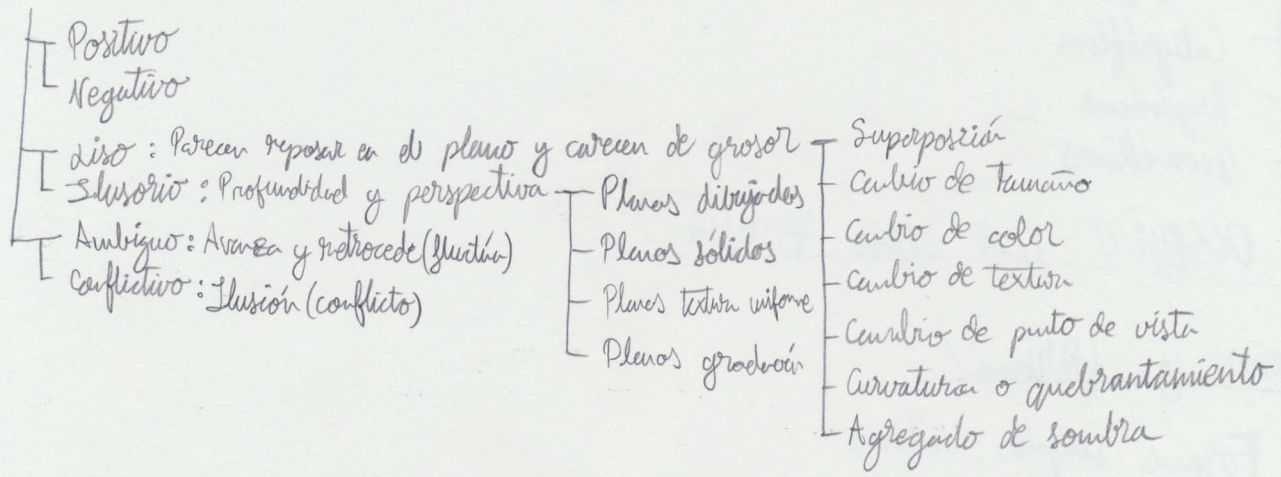 Positivo
Negativo
Liso : Parecen reposar en el plano y carecen de grosor
Ilusorio : Profundidad y perspectiva
Ambiguo : Avanza y retrocede (fluctúa)
Conflictivo : Ilusión (conflicto)
Planos dibujados
Planos sólidos
Planos textura uniforme
Planos gradación
Superposición
Cambio de tamaño
Cambio de color
Cambio de textura
Cambio de punto de vista
Curvatura o quebrantamiento
Agregado de sombra